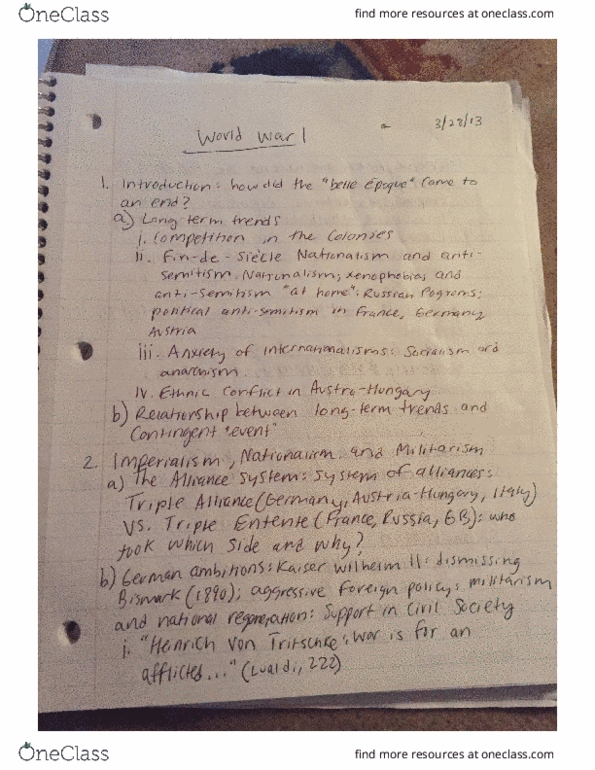 OneClass
find more resources at oneclass.com
3/28/13
World War 1
1. Introduction: how did the "belle Epoque" come to
an end?
a) Long term trends
i. Competition in the Colonies
ii. Fin-de-siècle Nationalism and anti-
semitism. Nationalism, xenophobia, and
anti-semitism "at home": Russian Pogroms;
political anti-semitism in France, Germany,
Austria
iii. Anxiety of internationalisms: Socialism and
anarchism.
iv. Ethnic Conflict in Austro-Hungary
b) Relationship between long-term trends and
Contingent "event"
2. Imperialism, Nationalism, and Militarism
a) The Alliance System: System of alliances:
Triple Alliance (Germany, Austria-Hungary, Italy)
vs. Triple Entente (France, Russia, GB): who
took which side and why?
b) German ambitions: Kaiser Wilhelm II: dismissing
Bismark (1890); aggressive foreign policy; militarism
and national regeneration: Support in Civil Society
i. "Heinrich von Tritschke: War is for an
afflicted..." (Lualdi, 222)
OneClass
find more resources at oneclass.com